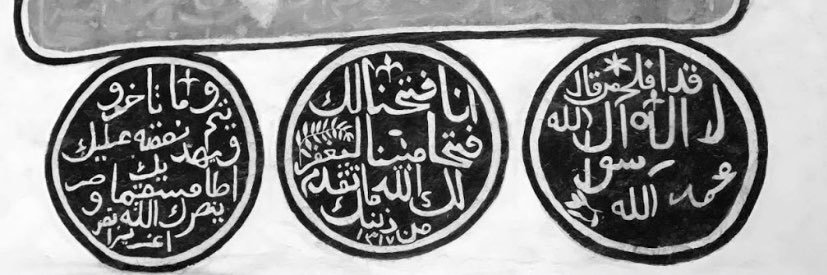 قد افلح من قال
لا اله الا الله
محمد رسول
الله
انا فتحنا لك
فتحا مبينا ليغفر
لك الله ما تقدم
من ذنبك
١٣١٧
وما تاخر و
يتم نعمته عليك
ويهديك
صراطا مستقيما و
ينصرك الله نصر
ا عزيزا